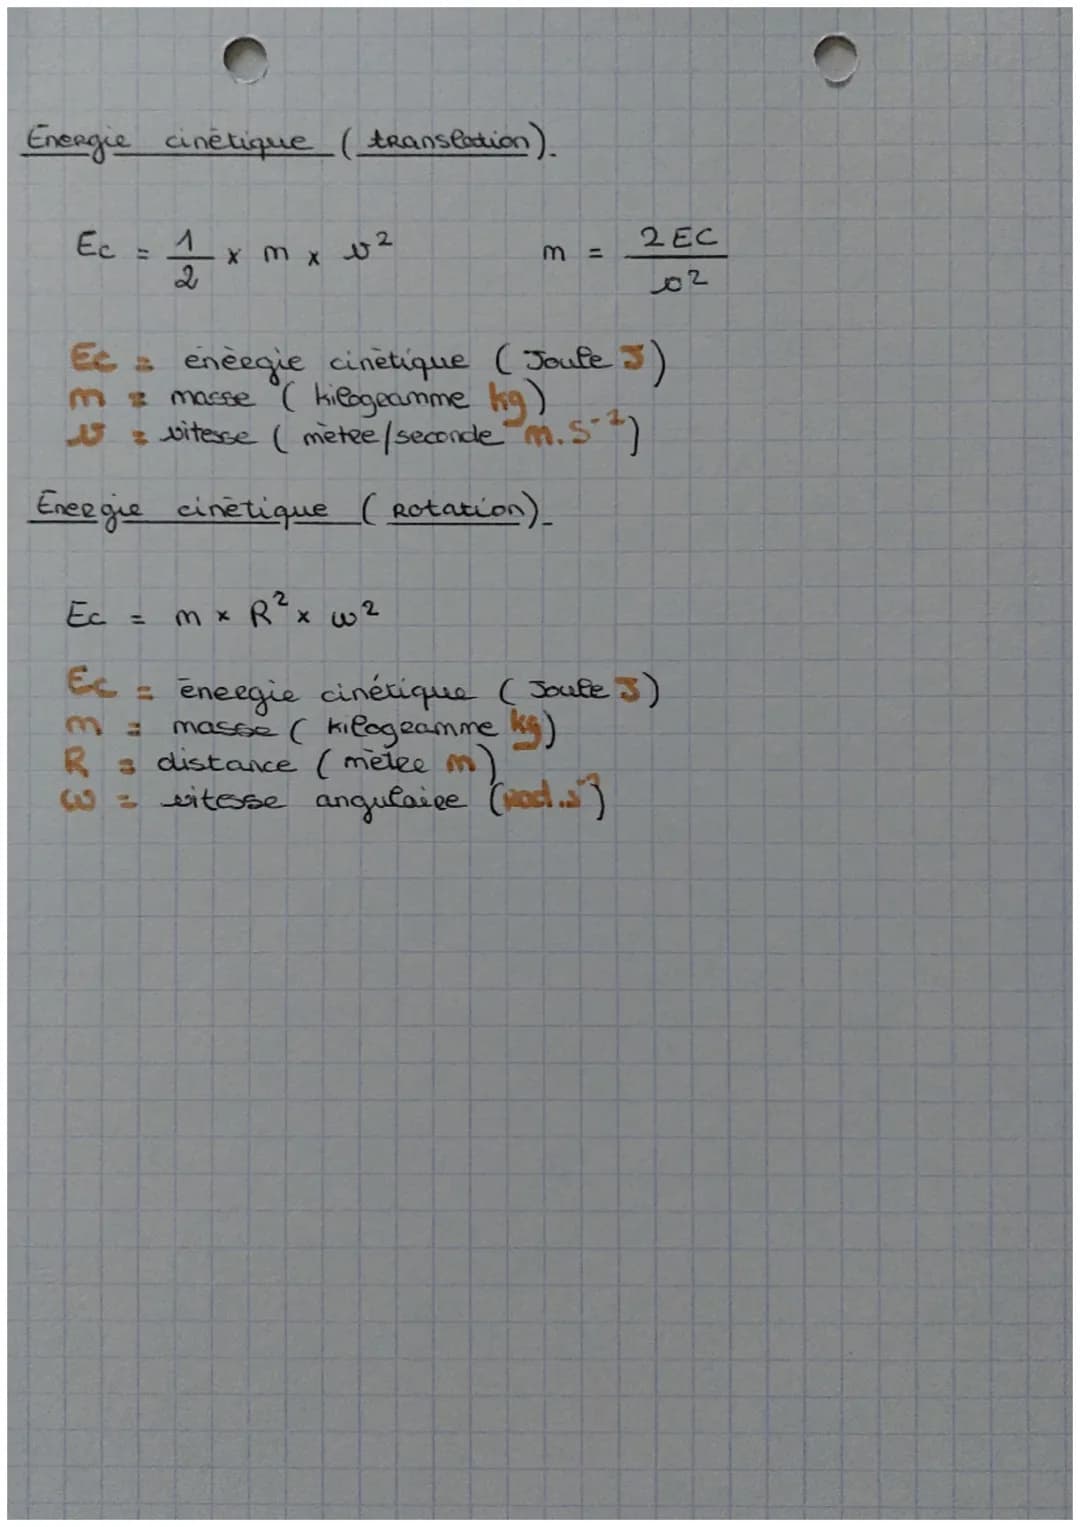 Energie cinétique (translation).
Ec = 1/2 x m x v² m = 2EC/v²
Ec = énergie cinétique (Joule J)
m = masse (kilogramme kg)
v = vitesse (mètre/seconde m.s⁻¹)
Energie cinétique (Rotation).
Ec = m x R² x ω²
Ec = énergie cinétique (Joule J)
m = masse (kilogramme kg)
R = distance (mètre m)
ω = vitesse angulaire (rad.s⁻¹)